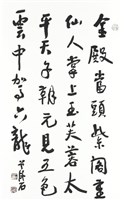 金殿當頭紫閣重
仙人掌上玉芙蓉太
平天子朝元見五色
雲車駕六龍